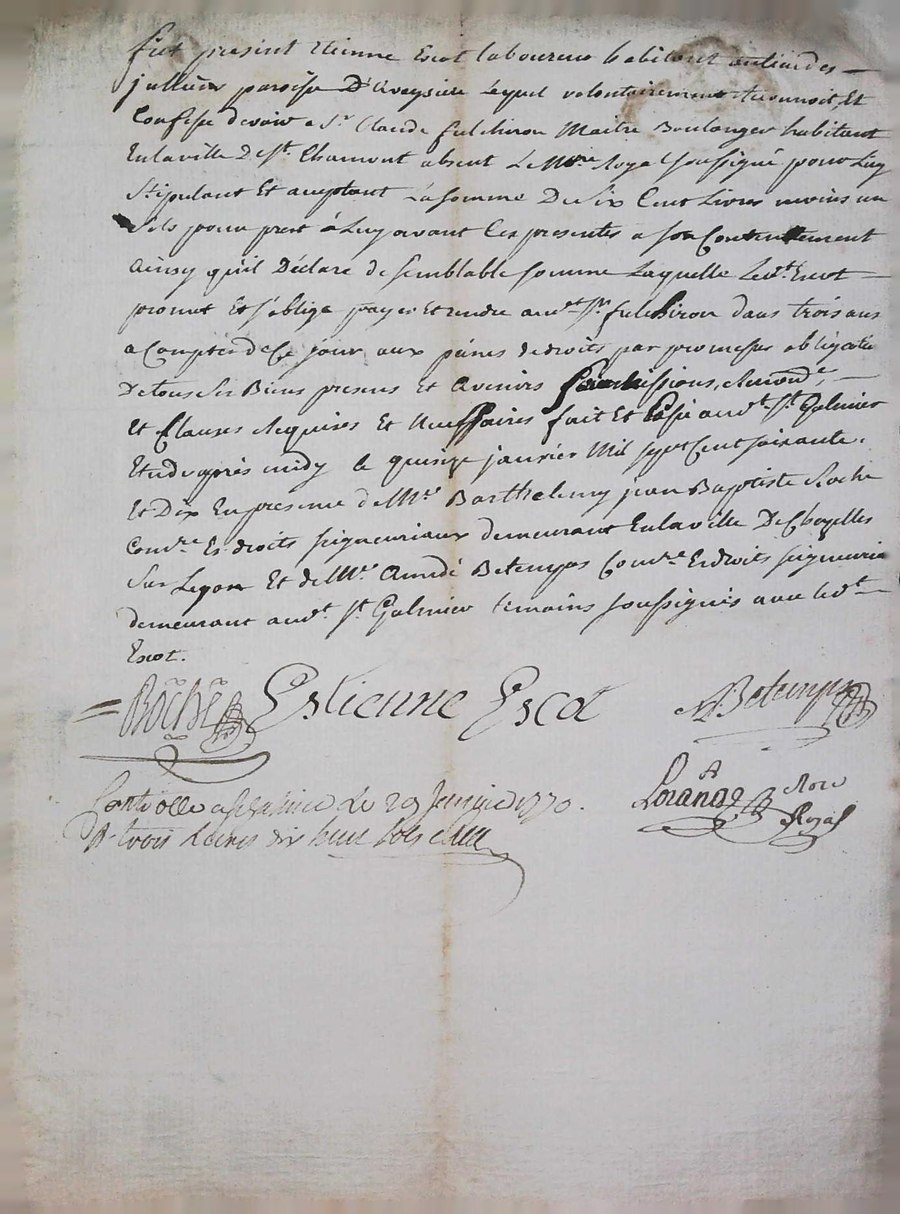 fut present Etienne Escot laboureur habitant au lieu des
jullien paroisse D'aveysieu Lequel volontairement reconnoit, Et
Confesse devoir a Sr. Claude fulchiron Maitre Boulanger habitant
En la ville De St. Chamont absent Le Nore. Royal soussigné pour Luy
Stipulant Et acceptant La somme De Six Cent Livres moins un
Sols pour prest à Luy avant Ces presentes a son Contentement
ainsy qu'il Déclare de semblable somme Laquelle Ledt. Escot
promet Et s'oblige payer Et rendre audt. Sr. fulchiron dans trois ans
a Compter de Ce jour aux peines de droits par promesses obligation
De tous ses Biens presens Et avenirs soumissions, renonde.
Et Clauses Requises Et Necessaires fait Et Passé audt. St. Galmier
Etude après midy le quinze janvier Mil sept Cent soixante
Et Dix En presence de Mre. Barthelemy jean Baptiste Roche
Comre. Es droits seigneuriaux demeurant En la ville De Chazelles
Sur Leyon Et de Mre. Amedé Betemps Comre. Es droits seigneuria
demeurant audt. St. Galmier temoins soussignés avec ledt.
Escot.
Roche Estienne Escot Betemps
Lorange Nore
Royal
Controllé a St Galmier Le 29 Janvier 1770.
R. trois Livres dix huit sols